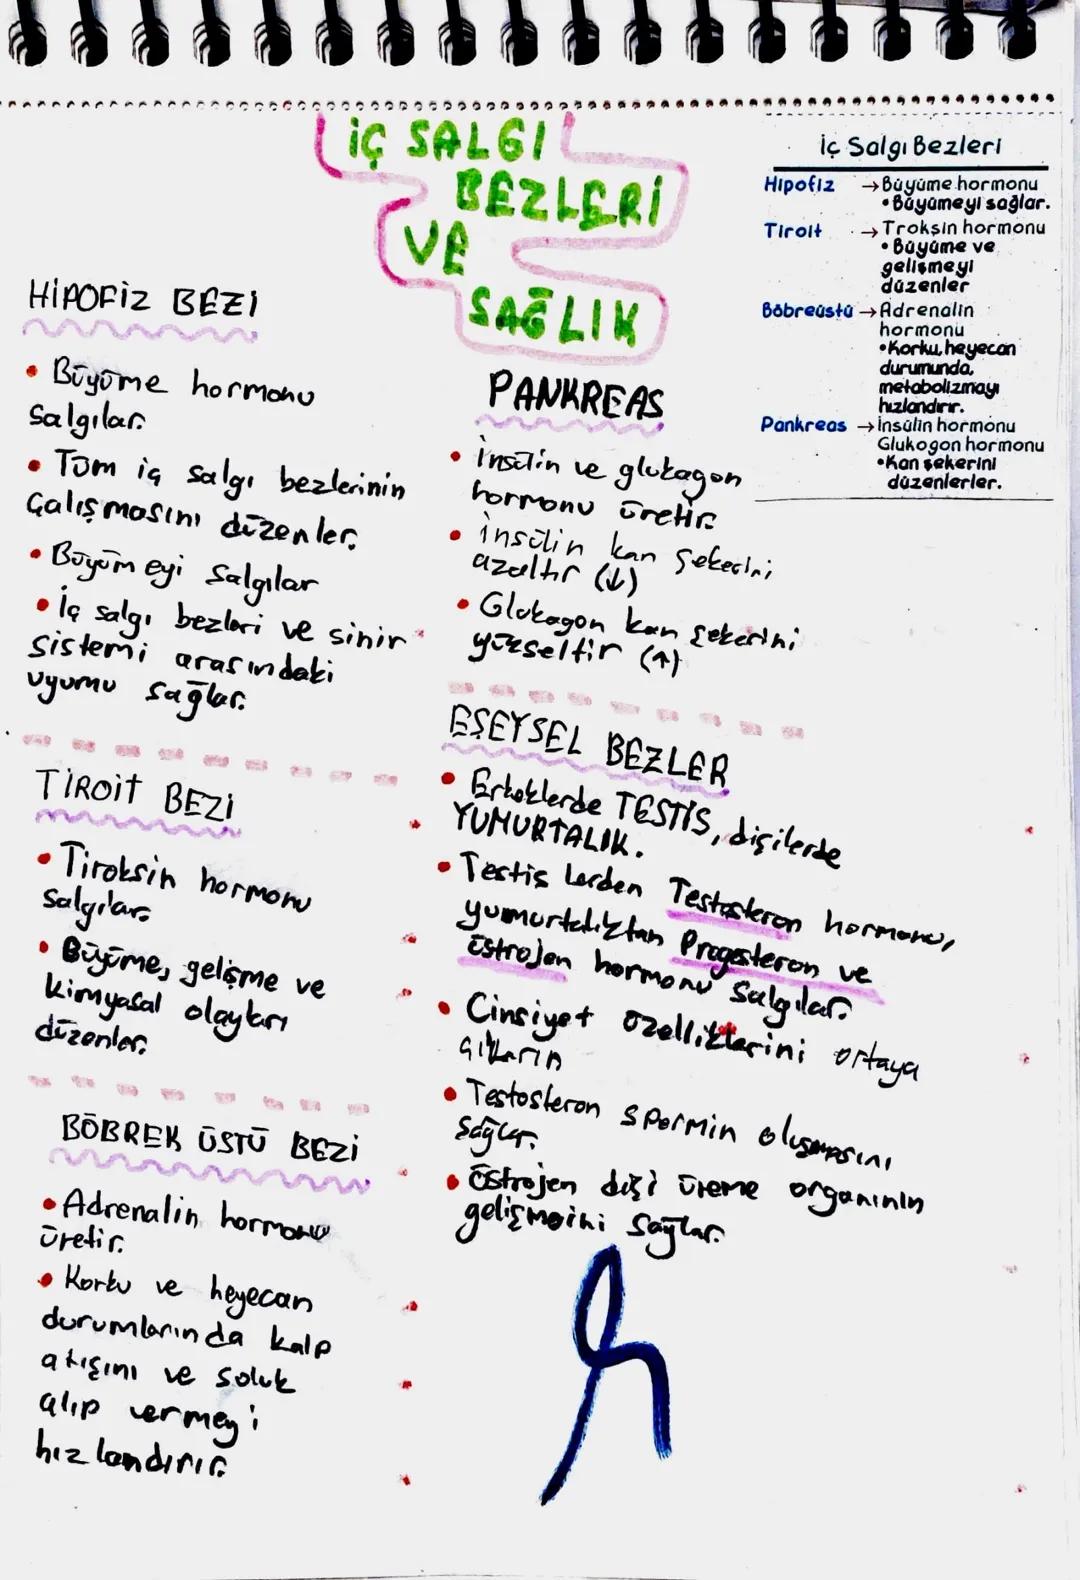 İÇ SALGI
BEZLERİ
VE
SAĞLIK
HİPOFİZ BEZİ
• Büyüme hormonu
salgılar.
• Tüm iç salgı bezlerinin
Çalışmasını düzenler.
• Büyümeyi Salgılar
• İç salgı bezleri ve sinir
sistemi arasındaki
uyumu sağlar.
TİROİT BEZİ
• Tiroksin hormonu
salgılar.
• Büyüme, gelişme ve
kimyasal olayları
düzenler.
BÖBREK ÜSTÜ BEZİ
• Adrenalin hormonu
üretir.
• Korku ve heyecan
durumlarında kalp
atışını ve soluk
alıp vermeyi
hızlandırır.
PANKREAS
• İnsülin ve glukagon
hormonu üretir.
• İnsülin kan şekerini
azaltır (↓)
• Glukagon kan şekerini
yükseltir (↑)
EŞEYSEL BEZLER
• Erkeklerde TESTİS, dişilerde
YUMURTALIK.
• Testis lerden Testosteron hormonu,
yumurtalıktan Progesteron ve
östrojen hormonu salgılar.
• Cinsiyet özelliklerini ortaya
• Testosteron spermin oluşmasını
sağlar.
• Östrojen dişi üreme organının
gelişmesini sağlar.
İç Salgı Bezleri
Hipofiz → Büyüme hormonu
• Büyümeyi sağlar.
Tiroit → Troksin hormonu
• Büyüme ve
gelişmeyi
düzenler
Böbreüstü → Adrenalin
hormonu
• Korku, heyecan
durumunda,
metabolizmayı
hızlandırır.
Pankreas → İnsülin hormonu
Glukogon hormonu
• Kan şekerini
düzenlerler.